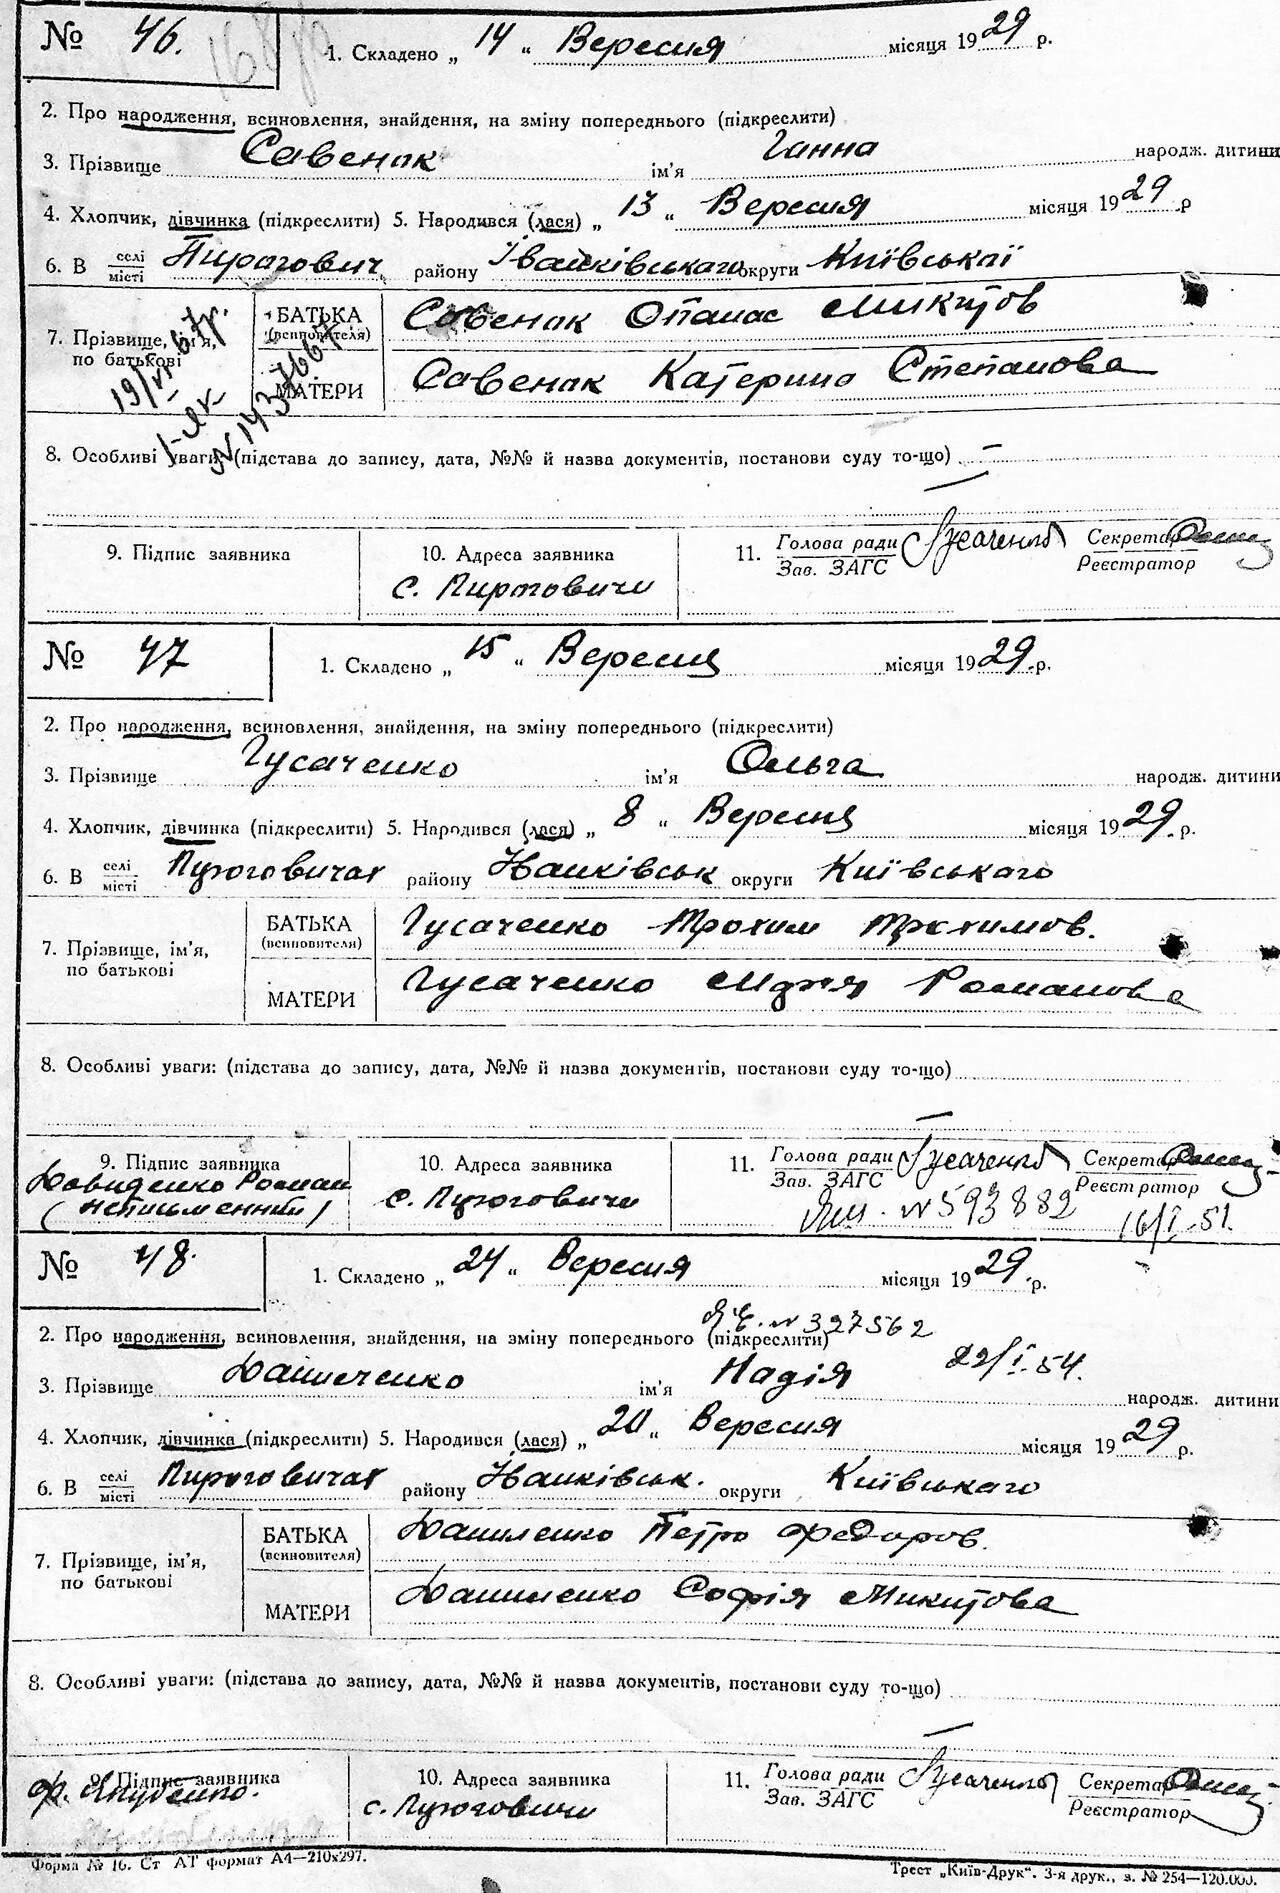 № 46.
1. Складено „ 14 “ Вересня місяця 1929 р.
2. Про народження, всиновлення, знайдення, на зміну попереднього (підкреслити)
3. Прізвище Савенок ім’я Ганна народж. дитини
4. Хлопчик, дівчинка (підкреслити) 5. Народився (лася) „ 13 “ Вересня місяця 1929 р
6. В селі Пирогович району Іванківського округи Київської
місті
7. Прізвище, ім’я, по батькові
БАТЬКА (всиновителя) Савенок Опанас Микитов
МАТЕРИ Савенок Катерина Степанова
19/VI 67р.
I-ЯК
№ 1437667
8. Особливі уваги: (підстава до запису, дата, №№ й назва документів, постанови суду то-що) —
—
9. Підпис заявника
10. Адреса заявника
с. Пироговичи
11. Голова ради Гусаченко Секретар
Зав. ЗАГС Реєстратор
№ 47
1. Складено „ 15 “ Вересня місяця 1929 р.
2. Про народження, всиновлення, знайдення, на зміну попереднього (підкреслити)
3. Прізвище Гусаченко ім’я Ольга народж. дитини
4. Хлопчик, дівчинка (підкреслити) 5. Народився (лася) „ 8 “ Вересня місяця 1929 р.
6. В селі Пироговичах району Іванківськ округи Київського
місті
7. Прізвище, ім’я, по батькові
БАТЬКА (всиновителя) Гусаченко Трохим Трохимов.
МАТЕРИ Гусаченко Марія Романова
8. Особливі уваги: (підстава до запису, дата, №№ й назва документів, постанови суду то-що)
—
9. Підпис заявника
Давиденко Роман
(неписьменний)
10. Адреса заявника
с. Пироговичи
11. Голова ради Гусаченко Секретар
Зав. ЗАГС Реєстратор
№ 593882 16/I-51.
№ 48.
1. Складено „ 24 “ Вересня місяця 1929 р.
№ 327562
2. Про народження, всиновлення, знайдення, на зміну попереднього (підкреслити)
22/I.54.
3. Прізвище ім’я Надія народж. дитини
4. Хлопчик, дівчинка (підкреслити) 5. Народився (лася) „ 20 “ Вересня місяця 1929 р.
6. В селі Пироговичах району Іванківськ. округи Київського
місті
7. Прізвище, ім’я, по батькові
БАТЬКА (всиновителя) Петро Федоров.
МАТЕРИ Софія Микитова
8. Особливі уваги: (підстава до запису, дата, №№ й назва документів, постанови суду то-що)
—
9. Підпис заявника
10. Адреса заявника
с. Пироговичи
11. Голова ради Гусаченко Секретар
Зав. ЗАГС Реєстратор
Форма № 16. Ст АТ формат А4—210x297.
Трест „Київ-Друк“. 3-я друк., з. № 254—120.000.